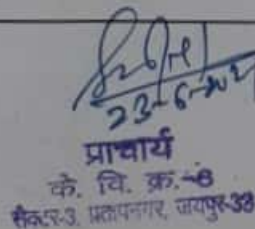 23-6-202
प्राचार्य
के. वि. क्र.-6
सैक्टर-3, प्रतापनगर, जयपुर-33